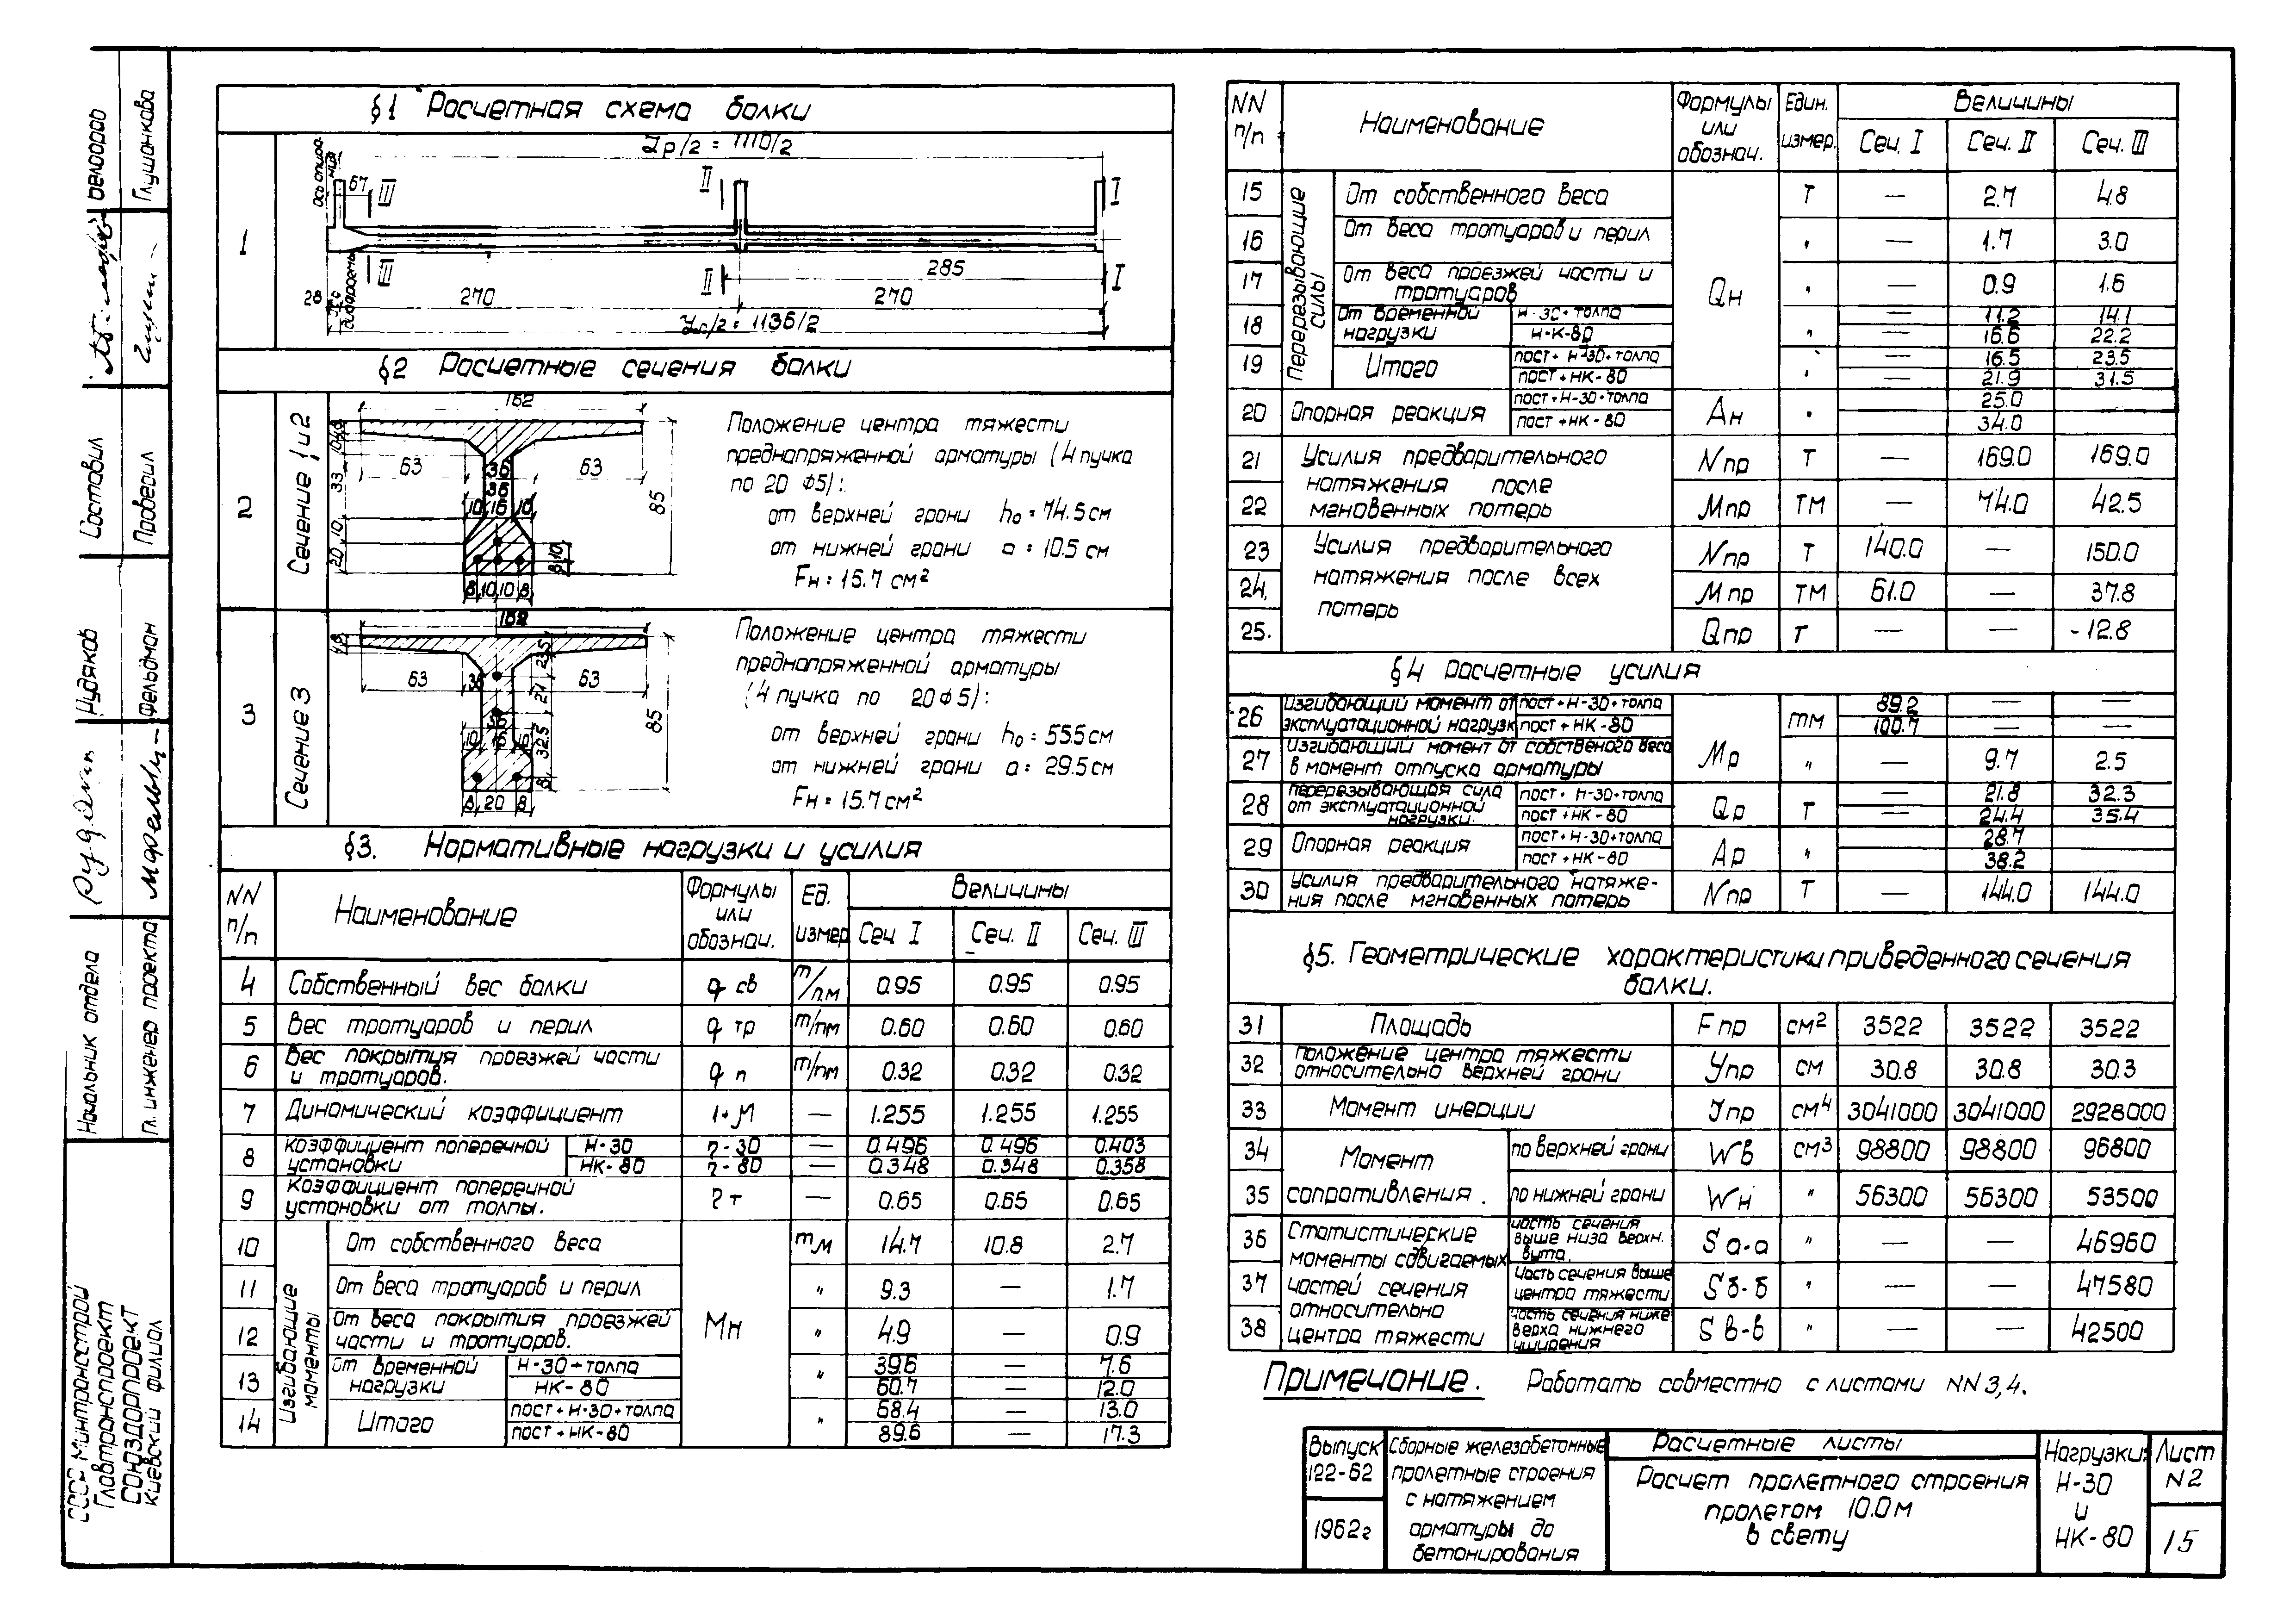 §1 Расчетная схема балки
1
Lр/2 = 1110/2
67
III
II
I
III
II
285
I
28
270
270
1136/2
§2 Расчетные сечения балки
2
Сечение 1 и 2
162
63
36
63
36
10 16 10
33
10
20
85
8 10 10 8
Положение центра тяжести
преднапряженной арматуры (4 пучка
по 20 ф5):
от верхней грани h₀ = 74.5 см
от нижней грани а = 10.5 см
Fн = 15.7 см²
3
Сечение 3
162
63
36
63
23.5
21
36
10 16 10
32.5
8
85
8 20 8
Положение центра тяжести
преднапряженной арматуры
(4 пучка по 20ф5):
от верхней грани h₀ = 55.5 см
от нижней грани а = 29.5 см
Fн = 15.7 см²
§3. Нормативные нагрузки и усилия
NN п/п Наименование Формулы или обознач. Ед. измер Величины
Сеч I Сеч. II Сеч. III
4 Собственный вес балки q св т/п.м 0.95 0.95 0.95
5 Вес тротуаров и перил q тр т/пм 0.60 0.60 0.60
6 Вес покрытия проезжей части и тротуаров. q п т/пм 0.32 0.32 0.32
7 Динамический коэффициент 1+М — 1.255 1.255 1.255
8 Коэффициент поперечной установки Н-30 η-30 — 0.496 0.496 0.403
НК-80 η-80 — 0.348 0.348 0.358
9 Коэффициент поперечной установки от толпы. η т — 0.65 0.65 0.65
Изгибающие моменты
Мн
10 От собственного веса тм 14.7 10.8 2.7
11 От веса тротуаров и перил " 9.3 — 1.7
12 От веса покрытия проезжей части и тротуаров. " 4.9 — 0.9
13 От временной нагрузки Н-30+толпа " 39.6 — 7.6
НК-80 60.7 — 12.0
14 Итого пост+Н-30+толпа " 68.4 — 13.0
пост+НК-80 89.6 — 17.3
NN п/п Наименование Формулы или обознач. Един. измер. Величины
Сеч. I Сеч. II Сеч. III
Перерезывающие силы
Qн
15 От собственного веса Т — 2.7 4.8
16 От веса тротуаров и перил " — 1.7 3.0
17 От веса проезжей части и тротуаров " — 0.9 1.6
18 От временной нагрузки Н-30+толпа — 11.2 14.1
Н-К-80 " — 16.6 22.2
19 Итого пост+Н-30+толпа " — 16.5 23.5
пост+НК-80 " — 21.9 31.5
20 Опорная реакция пост+Н-30+толпа Ан " 25.0
пост+НК-80 34.0
21 Усилия предварительного Nпр Т — 169.0 169.0
натяжения после
22 мгновенных потерь Мпр ТМ — 74.0 42.5
23 Усилия предварительного Nпр Т 140.0 — 150.0
24. натяжения после всех Мпр ТМ 61.0 — 37.8
потерь
25. Qпр Т — — -12.8
§4 Расчетные усилия
26 Изгибающий момент от пост+Н-30+толпа 89.2 — —
эксплуатационной нагрузк пост+НК-80 тм 100.7 — —
Мр
27 Изгибающий момент от собственого веса
в момент отпуска арматуры " — 9.7 2.5
28 перерезывающая сила от эксплуатационной нагрузки. пост+Н-30+толпа Qр Т — 21.8 32.3
пост+НК-80 — 24.4 35.4
29 Опорная реакция пост+Н-30+толпа Ар " 28.7
пост+НК-80 38.2
30 Усилия предварительного натяже-
ния после мгновенных потерь Nпр Т — 144.0 144.0
§5. Геометрические характеристики приведенного сечения
балки.
31 Площадь Fпр см² 3522 3522 3522
32 положение центра тяжести
относительно верхней грани Упр см 30.8 30.8 30.3
33 Момент инерции Jпр см⁴ 3041000 3041000 2928000
34 Момент по верхней грани Wв см³ 98800 98800 96800
35 сопротивления. по нижней грани Wн " 56300 56300 53500
Статистические моменты сдвигаемых частей сечения относительно центра тяжести
36 часть сечения выше низа верхн. вута. Sа-а " — — 46960
37 Часть сечения выше центра тяжести Sб-б " — — 47580
38 часть сечения ниже верха нижнего уширения Sв-в " — — 42500
Примечание. Работать совместно с листами NN 3,4.
Выпуск
122-62
1962г
Сборные железобетонные
пролетные строения
с натяжением
арматуры до
бетонирования
Расчетные листы
Расчет пролетного строения
пролетом 10.0 м
в свету
Нагрузки:
Н-30
и
НК-80
Лист
N2
15
Глушанкова
Составил
Проверил
Рудяков
Фельдман
Начальник отдела
Гл. инженер проекта
СССР Минтрансстрой
Главтранспроект
СОЮЗДОРПРОЕКТ
Киевский филиал